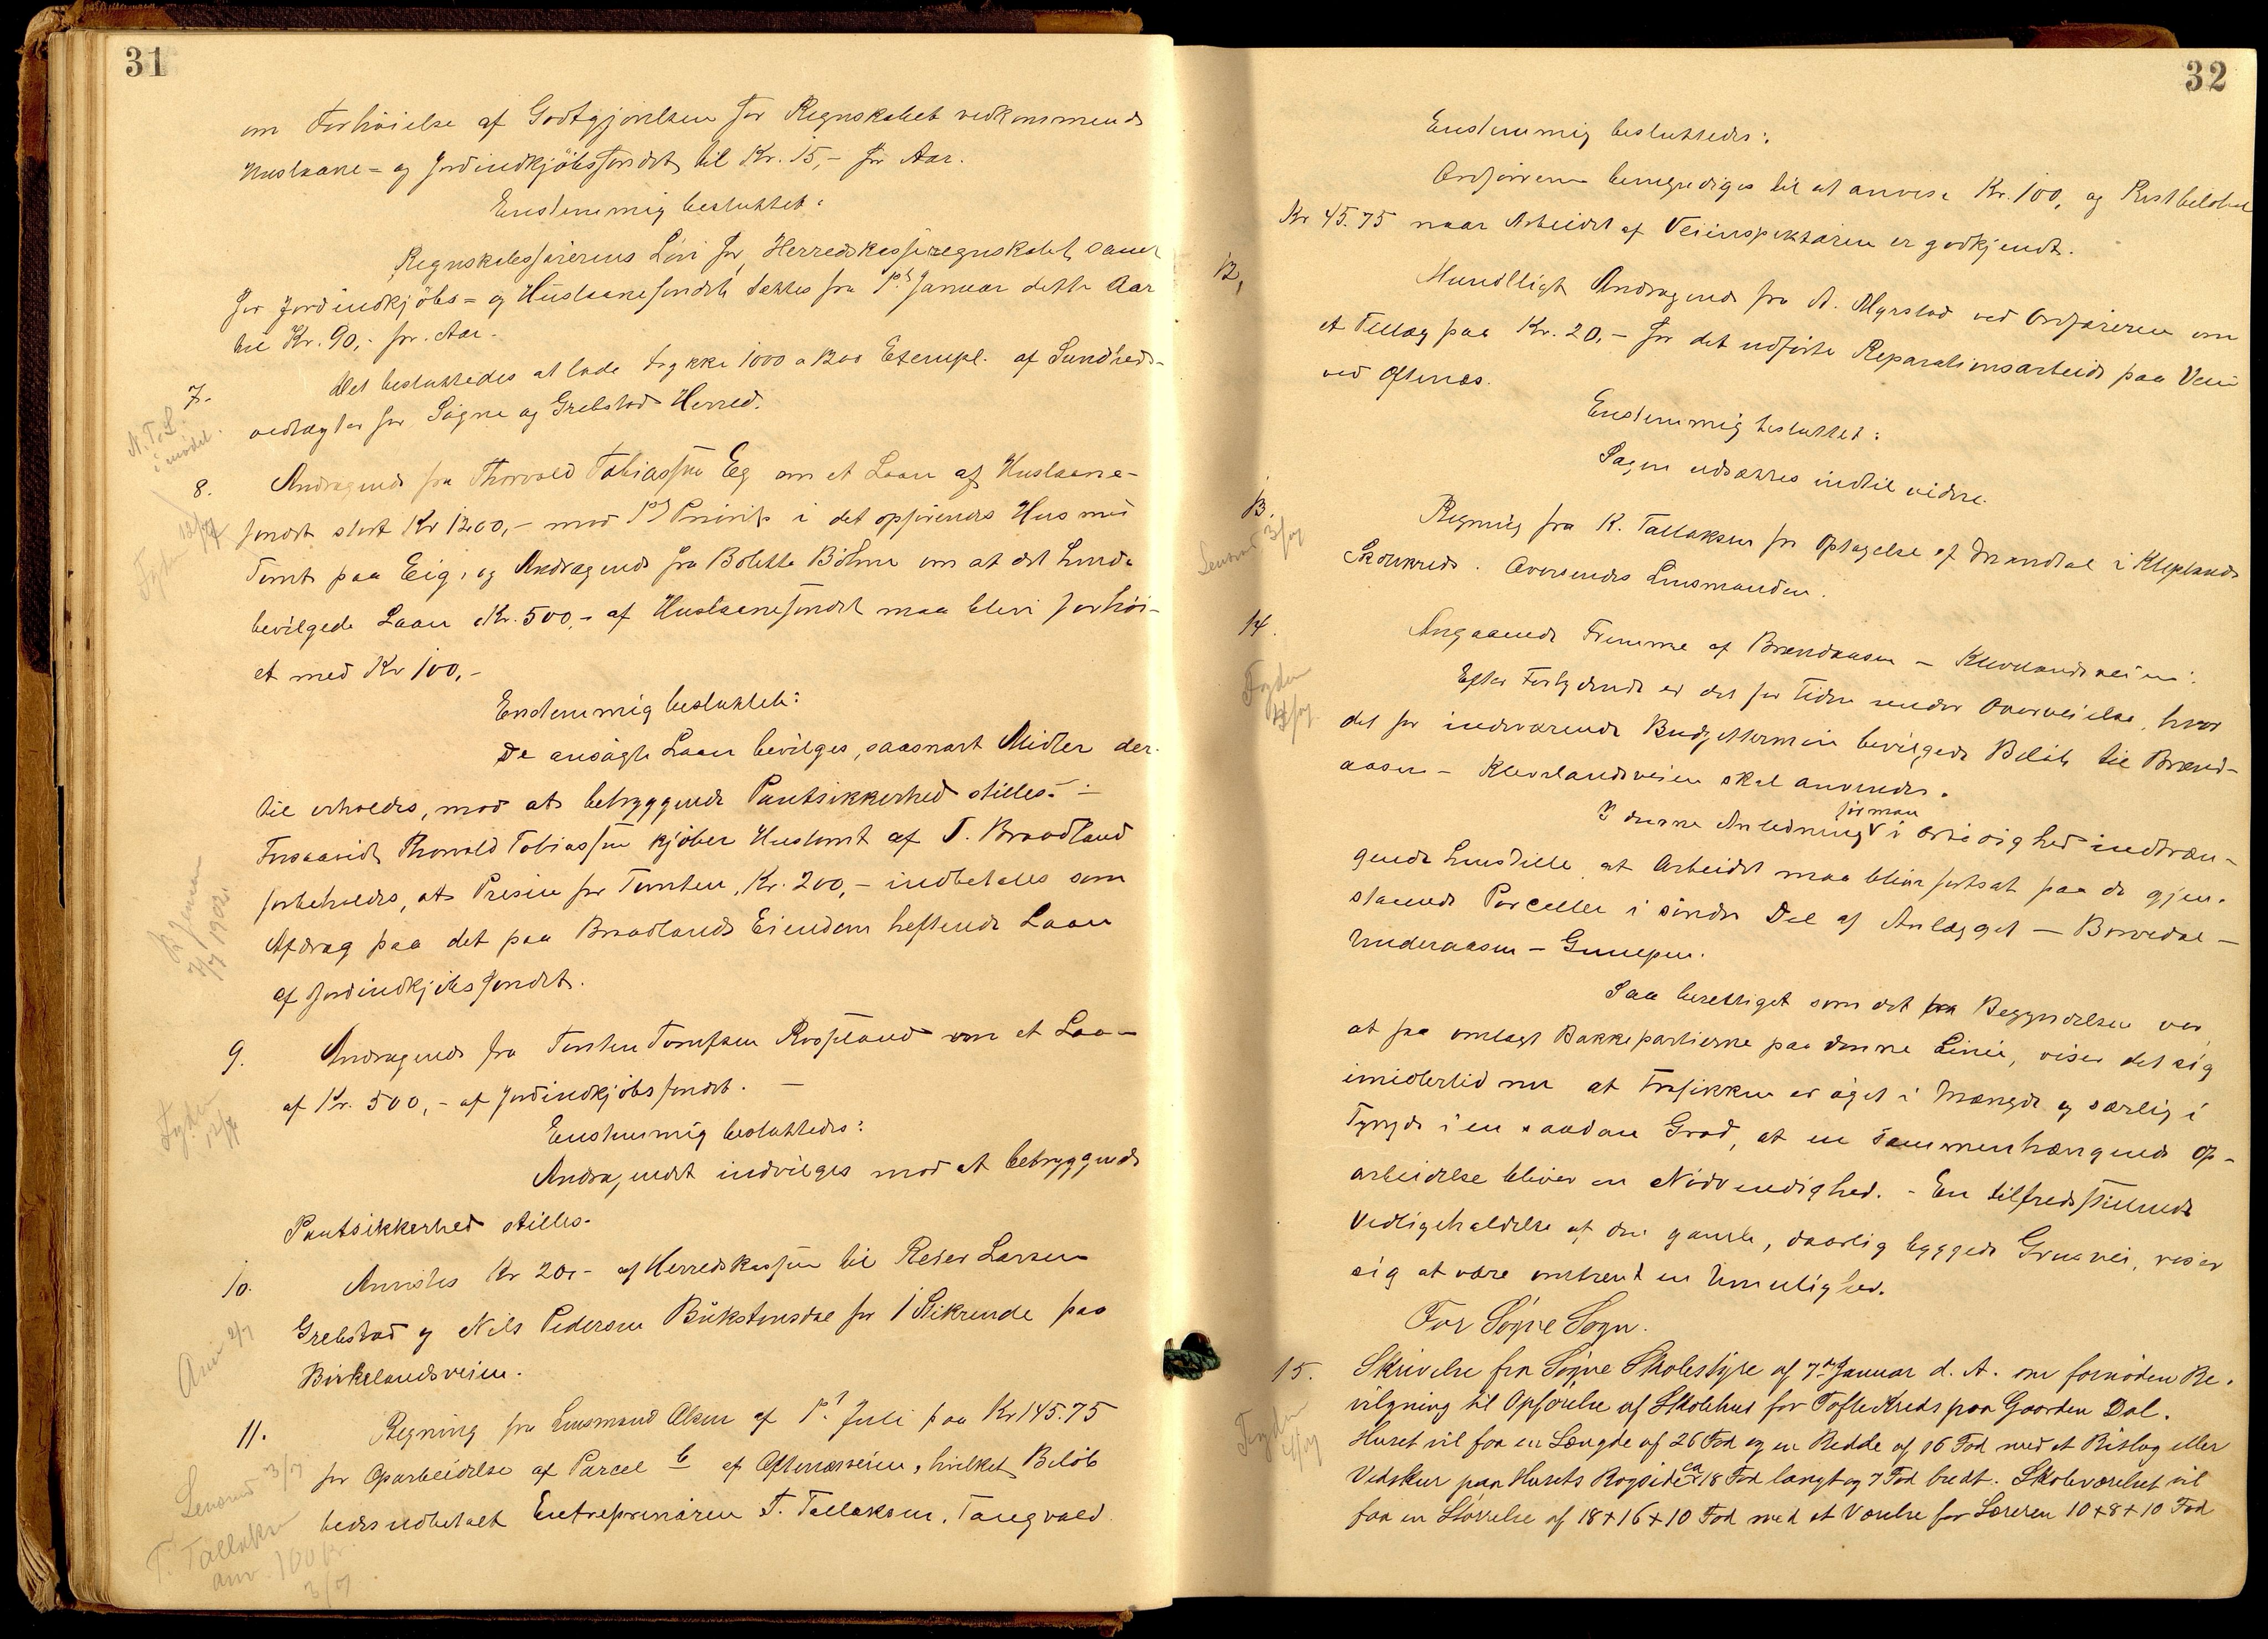 31
om Forhöielse af Godtgjörelsen for Regnskabet vedkommende
Huslaane- og Jordindkjöbsfondet til Kr. 15,- pr Aar.
Enstemmig besluttet:
Regnskabsförerens Lön for Herredskasseregnskabet samt
for Jordindkjöbs- og Huslaanefondet sættes fra 1ste Januar dette Aar
til Kr. 90,- pr. Aar.
7.
Det besluttedes at lade trykke 1000 a 1200 Exempl. af Sundheds-
vedtægter for Sögne og Grebstad Herred.
N.T.L.
i mödet.
8.
Andragende fra Thorvald Tobiassen Eeg om et Laan af Huslaane-
fondet stort Kr 1200,- mod 1ste Priorit. i det opförendes Hus med
Tomt paa Eig, og Andragende fra Bolette Böhme om at det hende
bevilgede Laan Kr. 500,- af Huslaanefondet maa blive forhöi-
et med Kr 100,-
Enstemmig besluttet:
De ansögte Laan bevilges, saasnart Midler der-
til erholdes, mod at betryggende Pantsikkerhed stilles. -
Forsaavidt Thorvald Tobiassen kjöber Hustomt af T. Braadland
forbeholdes, at Prisen for Tomten, Kr. 200,- indbetales som
Afdrag paa det paa Braadlands Eiendom heftende Laan
af Jordindkjöbsfondet.
9.
Andragende fra Torsten Tomassen Rosseland om et Laan
af Kr. 500,- af Jordindkjöbsfondet. -
Enstemmig besluttedes:
Andragendet indvilges mod at betryggende
Pantsikkerhed stilles.
10.
Anvistes Kr 20,- af Herredskassen til Reier Larsen
Grebstad og Nils Pedersen Bukstensdal for 1 Stikrende paa
Birkelandsveien.
Anv 2/7
11.
Regning fra Lensmand Olsen af 1ste Juli paa Kr 145.75
for Oparbeidelse af Parcel 6 af Oftenæsveien, hvilket Belöb
bedes udbetalt Entreprenören T. Tallaksen, Tangvald.
Lensmd 3/7
T. Tallaksen
anv. 100 kr.
3/07
32
Enstemmig besluttedes:
Ordföreren bemyndiges til at anvise Kr. 100, og Restbelöbet
Kr 45.75 naar Arbeidet af Veiinspektören er godkjendt.
12,
Mundtligt Andragende fra A. Myrstad ved Ordföreren om
et Tillæg paa Kr. 20,- for det udförte Reparationsarbeide paa Veien
ved Oftenæs.
Enstemmig besluttet:
Sagen udsættes indtil videre.
13.
Regning fra K. Tallaksen for Optagelse af Mandtal i Kleplands
Skolekreds. Oversendes Lensmanden.
Lensmd 3/07
14.
Angaaende Fremme af Brandaasen - Klevelandsveien:
Efter Forlydende er det for Tiden under Overveielse, hvor
det for indeværende Budgettermin bevilgede Belöb til Brand-
aasen - Klevelandsveien skal anvendes.
I denne Anledning tör man i Ærbödighed indtræn-
gende henstille, at Arbeidet maa blive fortsat paa de gjen-
staaende Parceller i söndre Del af Anlægget - Brovedal -
Underaasen - Gumpen.
Saa berettiget som det fra Begyndelsen var
at faa omlagt Bakkepartierne paa denne Linie, viser det sig
imidlertid nu at Trafikken er öget i Mængde og særlig i
Tyngde i en saadan Grad, at en sammenhængende Op-
arbeidelse bliver en Nödvendighed. - En tilfredsstillende
Vedligeholdelse af den gamle, daarlig byggede Grusvei, viser
sig at være omtrent en Umulighed.
For Sögne Sogn.
15.
Skrivelse fra Sögne Skolestyre af 7de Januar d. A. om fornöden Be-
vilgning til Opförelse af Skolehus for Tofte Kreds paa Gaarden Dal.
Huset vil faa en Længde af 26 Fod og en Bredde af 16 Fod med et Bislag eller
Vedskur paa Husets Bagside ca 18 Fod langt og 7 Fod bredt. Skoleværelset vil
faa en Störrelse af 18 + 16 + 10 Fod med et Værelse for Læreren 10 + 8 + 10 Fod